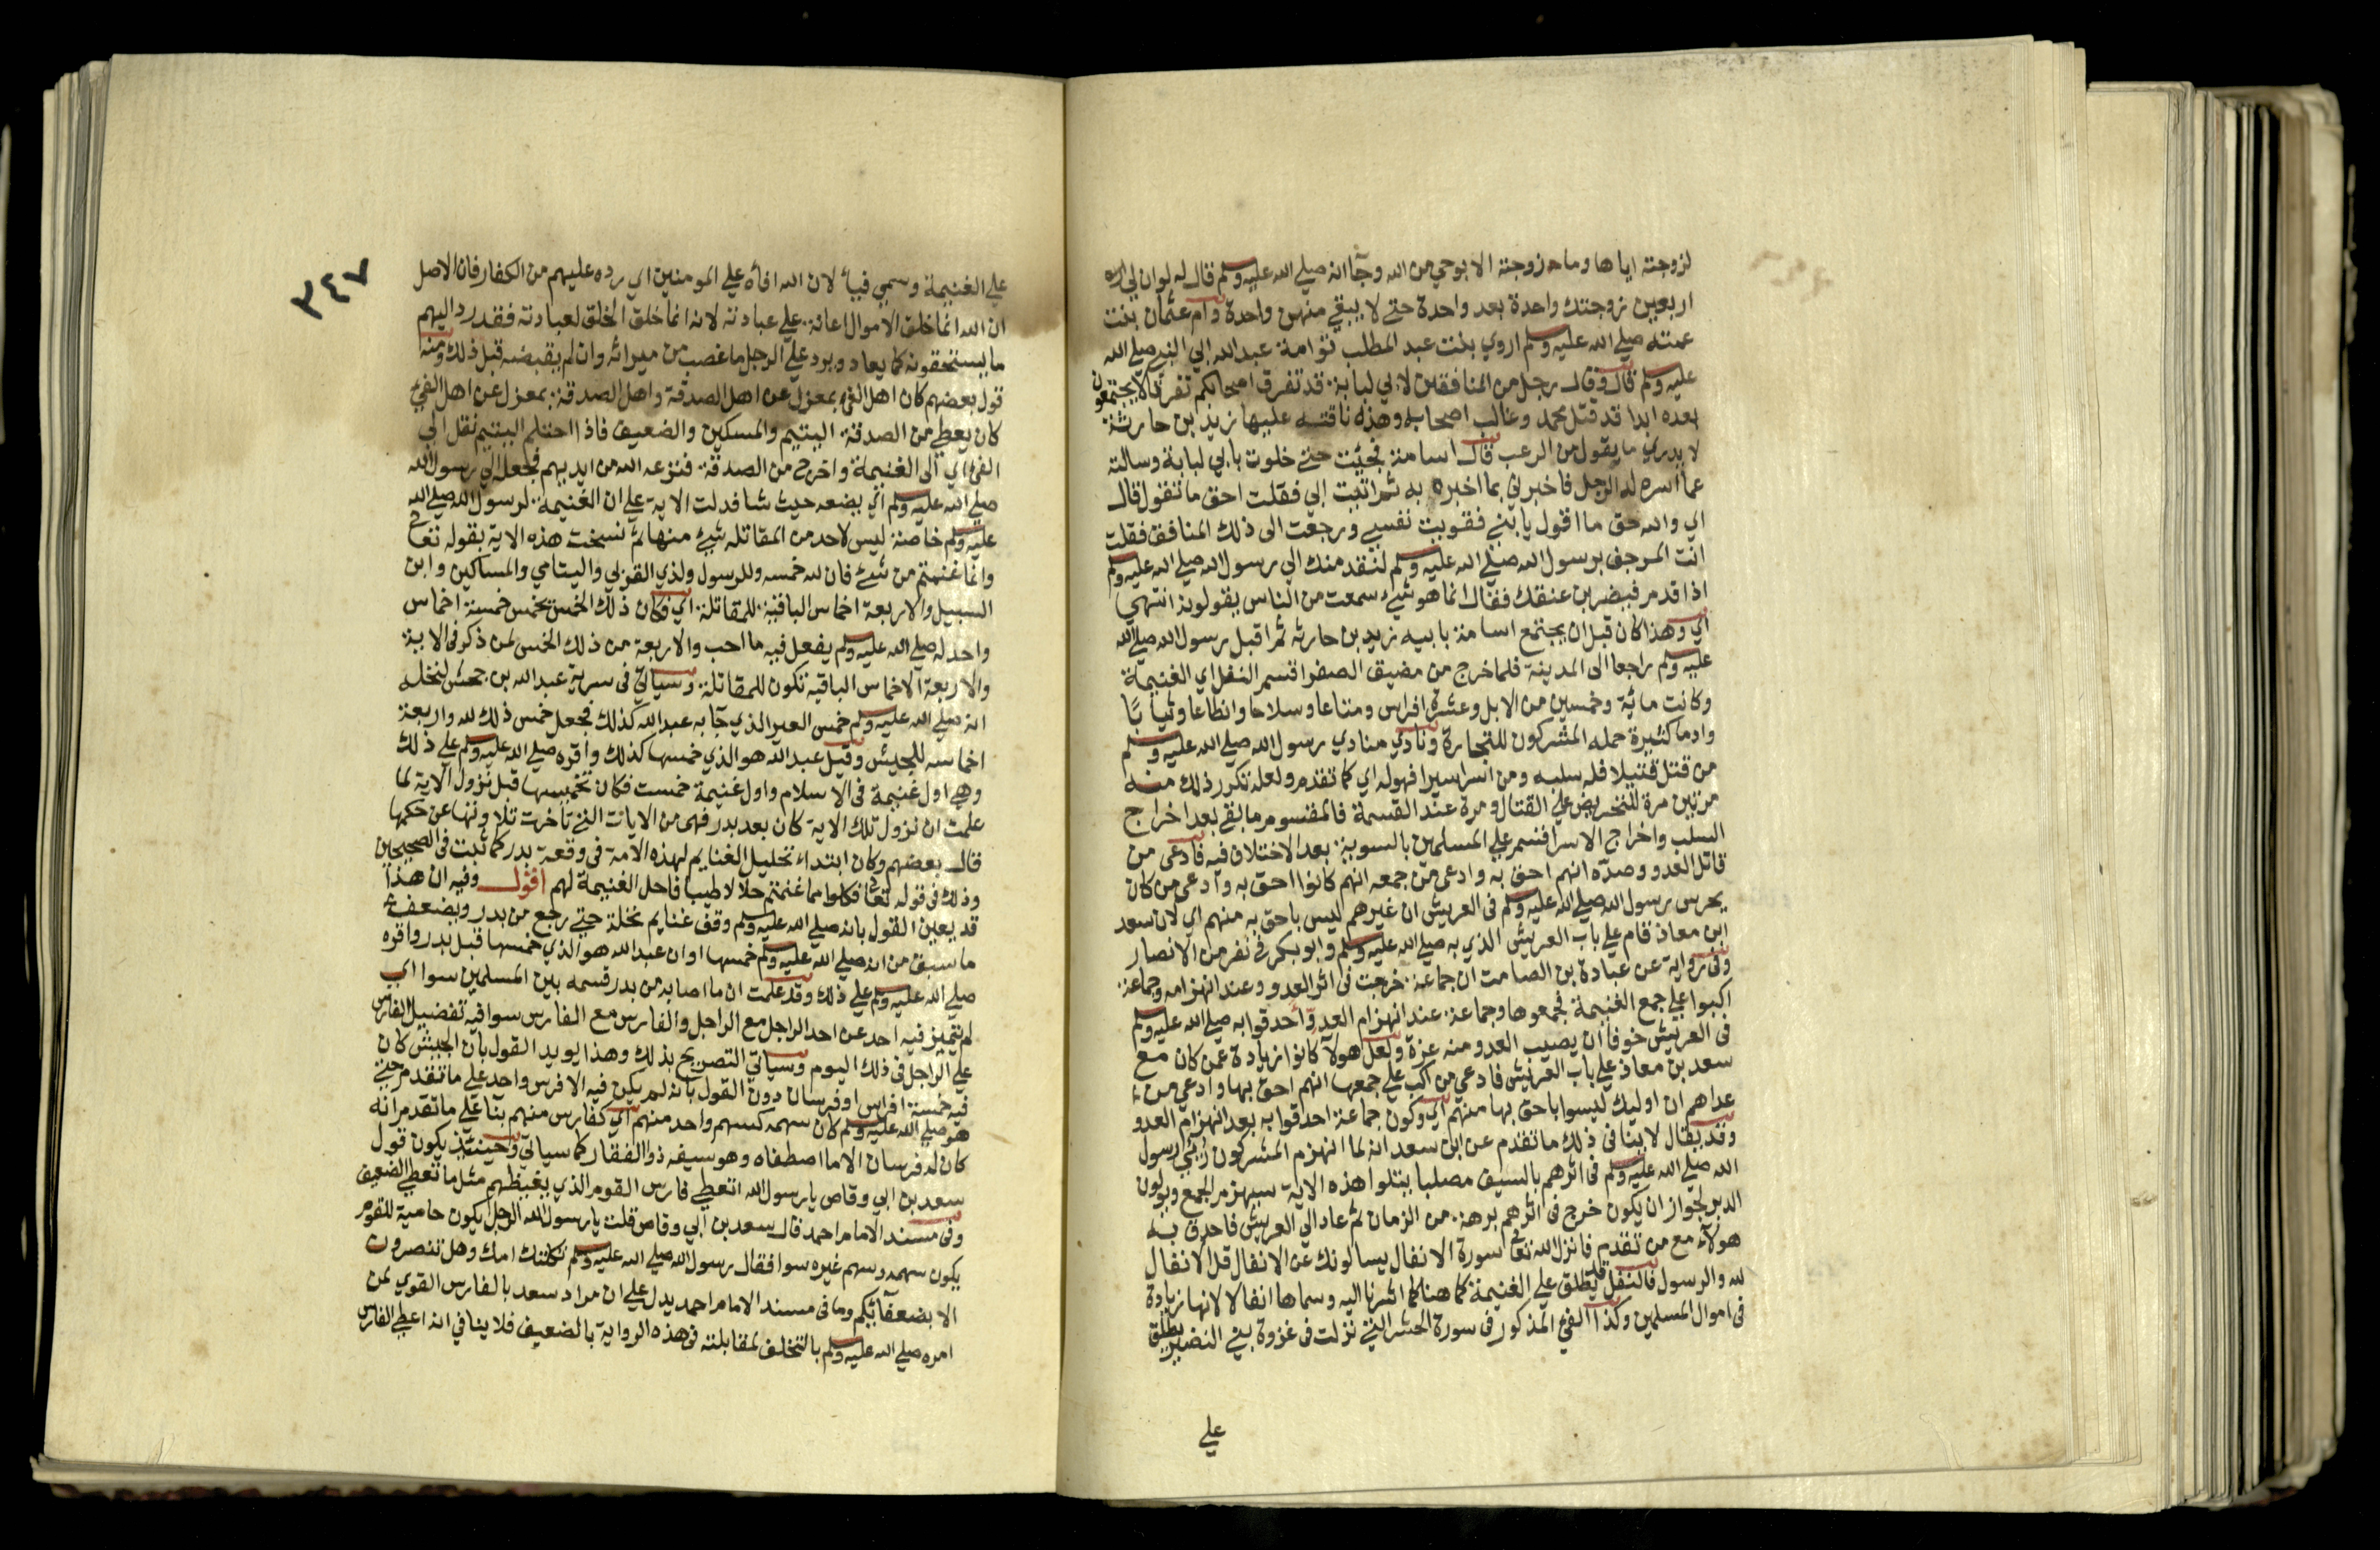 لزوجته اياها وما زوجته الا بوحي من الله وجآ انه صلي الله عليه وسلم قال له لو ان لي
اربعين زوجتك واحدة بعد واحدة حتي لا يبقي منهن واحدة وام عثمان بنت
عمته صلي الله عليه وسلم اروي بنت عبد المطلب توامة عبد الله ابي النبي صلي الله
عليه وسلم قال وقال رجل من المنافقين لابي لبابة قد تفرق اصحابكم تفرقا لا يجتمعون
بعده ابدا قد قتل محمد وغالب اصحابه وهذه ناقته عليها زيد بن حارثة
لا يدري ما يقول من الرعب قال اسامة فجئت حتي خلوت بابي لبابة وسالته
عما اسره له الرجل فاخبرني بما اخبره به ثم اتيت ابي فقلت احق ما تقول قال
اي والله حق ما اقول يا بني فقويت نفسي ورجعت الى ذلك المنافق فقلت
انت المرجف برسول الله صلي الله عليه وسلم لنقدمنك الي رسول الله صلي الله عليه وسلم
اذا قدم فيضربن عنقك فقال انما هو شيء سمعت من الناس يقولونه انتهي
اي وهذا كان قبل ان يجتمع اسامة بابيه زيد بن حارثه ثم اقبل رسول الله صلي الله
عليه وسلم راجعا الى المدينة فلما خرج من مضيق الصفرا قسم النفل اي الغنيمة
وكانت ماية وخمسين من الابل وعشرة افراس ومتاعا وسلاحا وانطاعا وثيابا
وادما كثيرة حمله المشركون للتجارة ونادي منادي رسول الله صلي الله عليه وسلم
من قتل قتيلا فله سلبه ومن اسر اسيرا فهو له اي كما تقدم ولعله تكرر ذلك منه
مرتين مرة للتحريض علي القتال ومرة عند القسمة فالمقسوم ما بقي بعد اخراج
السلب واخراج الاسرا فقسم علي المسلمين بالسوية بعد الاختلاف فيه فادعى من
قاتل العدو وصده انهم احق به وادعى من جمعه انهم كانوا احق به وادعى من كان
يحرس رسول الله صلي الله عليه وسلم فى العريش ان غيرهم ليس باحق به منهم اي لان سعد
ابن معاذ قام علي باب العريش الذي به صلي الله عليه وسلم وابو بكر فى نفر من الانصار
وفى رواية عن عبادة بن الصامت ان جماعة خرجت فى اثر العدو وعند انهزامه وجماعة
اكبوا علي جمع الغنيمة فجمعوها وجماعة عند انهزام العدو احدقوا به صلي الله عليه وسلم
فى العريش خوفا ان يصيب العدو منه غرة ولعل هولآ كانوا زيادة عمن كان مع
سعد بن معاذ علي باب العريش فادعي من اكب علي جمعها انهم احق بها وادعي من
عداهم ان اوليك ليسوا باحق بها منهم اي وكون جماعة احدقوا به بعد انهزام العدو
وقد يقال لا ينافى ذلك ما تقدم عن ابن سعد انه لما انهزم المشركون رئي رسول
الله صلي الله عليه وسلم فى اثرهم بالسيف مصلتا يتلوا هذه الاية سيهزم الجمع ويولون
الدبر لجواز ان يكون خرج فى اثرهم برهة من الزمان ثم عاد الي العريش فاحدق به
هولآء مع من تقدم فانزل الله تعالى سورة الانفال يسالونك عن الانفال قل الانفال
لله والرسول فالنفل قد يطلق علي الغنيمة كما هنا كما اشرنا اليه وسماها انفالا لانها زيادة
فى اموال المسلمين وكذا الفي المذكور فى سورة الحشر التي نزلت فى غزوة بني النضير يطلق
علي
٣٤٧
علي الغنيمة وسمي فيئا لان الله افاه علي المومنين اي رده عليهم من الكفار فان الاصل
ان الله انما خلق الاموال اعانة علي عبادته لانه انما خلق الخلق لعبادته فقد رد اليهم
ما يستحقونه كما يعاد ويرد علي الرجل ما غصب من ميراثه وان لم يقبضه قبل ذلك ومنه
قول بعضهم كان اهل الفي بمعزل عن اهل الصدقة واهل الصدقة بمعزل عن اهل الفي
كان يعطي من الصدقة اليتيم والمسكين والضعيف فاذا احتلم اليتيم نقل الي
الفي اي الى الغنيمة واخرج من الصدقة فنزعه الله من ايديهم فجعله الي رسول الله
صلي الله عليه وسلم اي يضعه حيث شا فدلت الاية علي ان الغنيمة لرسول الله صلي الله
عليه وسلم خاصة ليس لاحد من المقاتلة شيء منها ثم نسخت هذه الاية بقوله تعالى
وانما غنمتم من شيء فان لله خمسه وللرسول ولذي القربي واليتامي والمساكين وابن
السبيل والاربعة اخماس الباقية للمقاتلة اي فكان ذلك الخمس يخمس خمسة اخماس
واحد له صلي الله عليه وسلم يفعل فيه ما احب والاربعة من ذلك الخمس لمن ذكر فى الاية
والاربعة الاخماس الباقيه تكون للمقاتلة وسياتي فى سرية عبد الله بن جحش لنخلة
انه صلي الله عليه وسلم خمس العير الذي جآ به عبد الله كذلك فجعل خمس ذلك لله واربعة
اخماسه للجيش وقيل عبد الله هو الذي خمسها كذلك واقره صلي الله عليه وسلم علي ذلك
وهي اول غنيمة فى الاسلام واول غنيمة خمست فكان تخميسها قبل نزول الاية لما
علمت ان نزول تلك الاية كان بعد بدر فهى من الايات التي تاخرت تلاوتها عن حكمها
قال بعضهم وكان ابتداء تحليل الغنايم لهذه الامة فى وقعة بدر كما ثبت فى الصحيحين
وذلك فى قوله تعالى فكلوا مما غنمتم حلالا طيبا فاحل الغنيمة لهم اقول وفيه ان هذا
قد يعين القول بانه صلي الله عليه وسلم وقف غنايم نخلة حتي رجع من بدر ويضعف
ما سبق من انه صلي الله عليه وسلم خمسها او ان عبد الله هو الذي خمسها قبل بدر واقره
صلي الله عليه وسلم علي ذلك وقد علمت ان ما اصابه من بدر قسمه بين المسلمين سوا اي
لم يتميز فيه احد عن احد الراجل مع الراجل والفارس مع الفارس سوا فيه تفضيل الفارس
علي الراجل فى ذلك اليوم وسياتي التصريح بذلك وهذا يويد القول بان الجيش كان
فيه خمسة افراس او فرسان دون القول بانه لم يكن فيه الا فرس واحد علي ما تقدم حتي
هو صلي الله عليه وسلم كان سهمه كسهم واحد منهم اي كفارس منهم بنا علي ما تقدم انه
كان له فرسان الا ما اصطفاه وهو سيفه ذو الفقار كما سياتي وحينئذ يكون قول
سعد بن ابي وقاص يا رسول الله اتعطي فارس القوم الذي يغيظهم مثل ما تعطي الضعيف
وفى مسند الامام احمد قال سعد بن ابي وقاص قلت يا رسول الله الرجل يكون حامية للقوم
يكون سهمه وسهم غيره سوا فقال رسول الله صلي الله عليه وسلم ثكلتك امك وهل تنصرون
الا بضعفآئكم وما فى مسند الامام احمد يدل علي ان مراد سعد بالفارس القوي لمن
امره صلي الله عليه وسلم بالتخلف لمقابلته فى هذه الرواية بالضعيف فلا ينافي انه اعطي الفارس